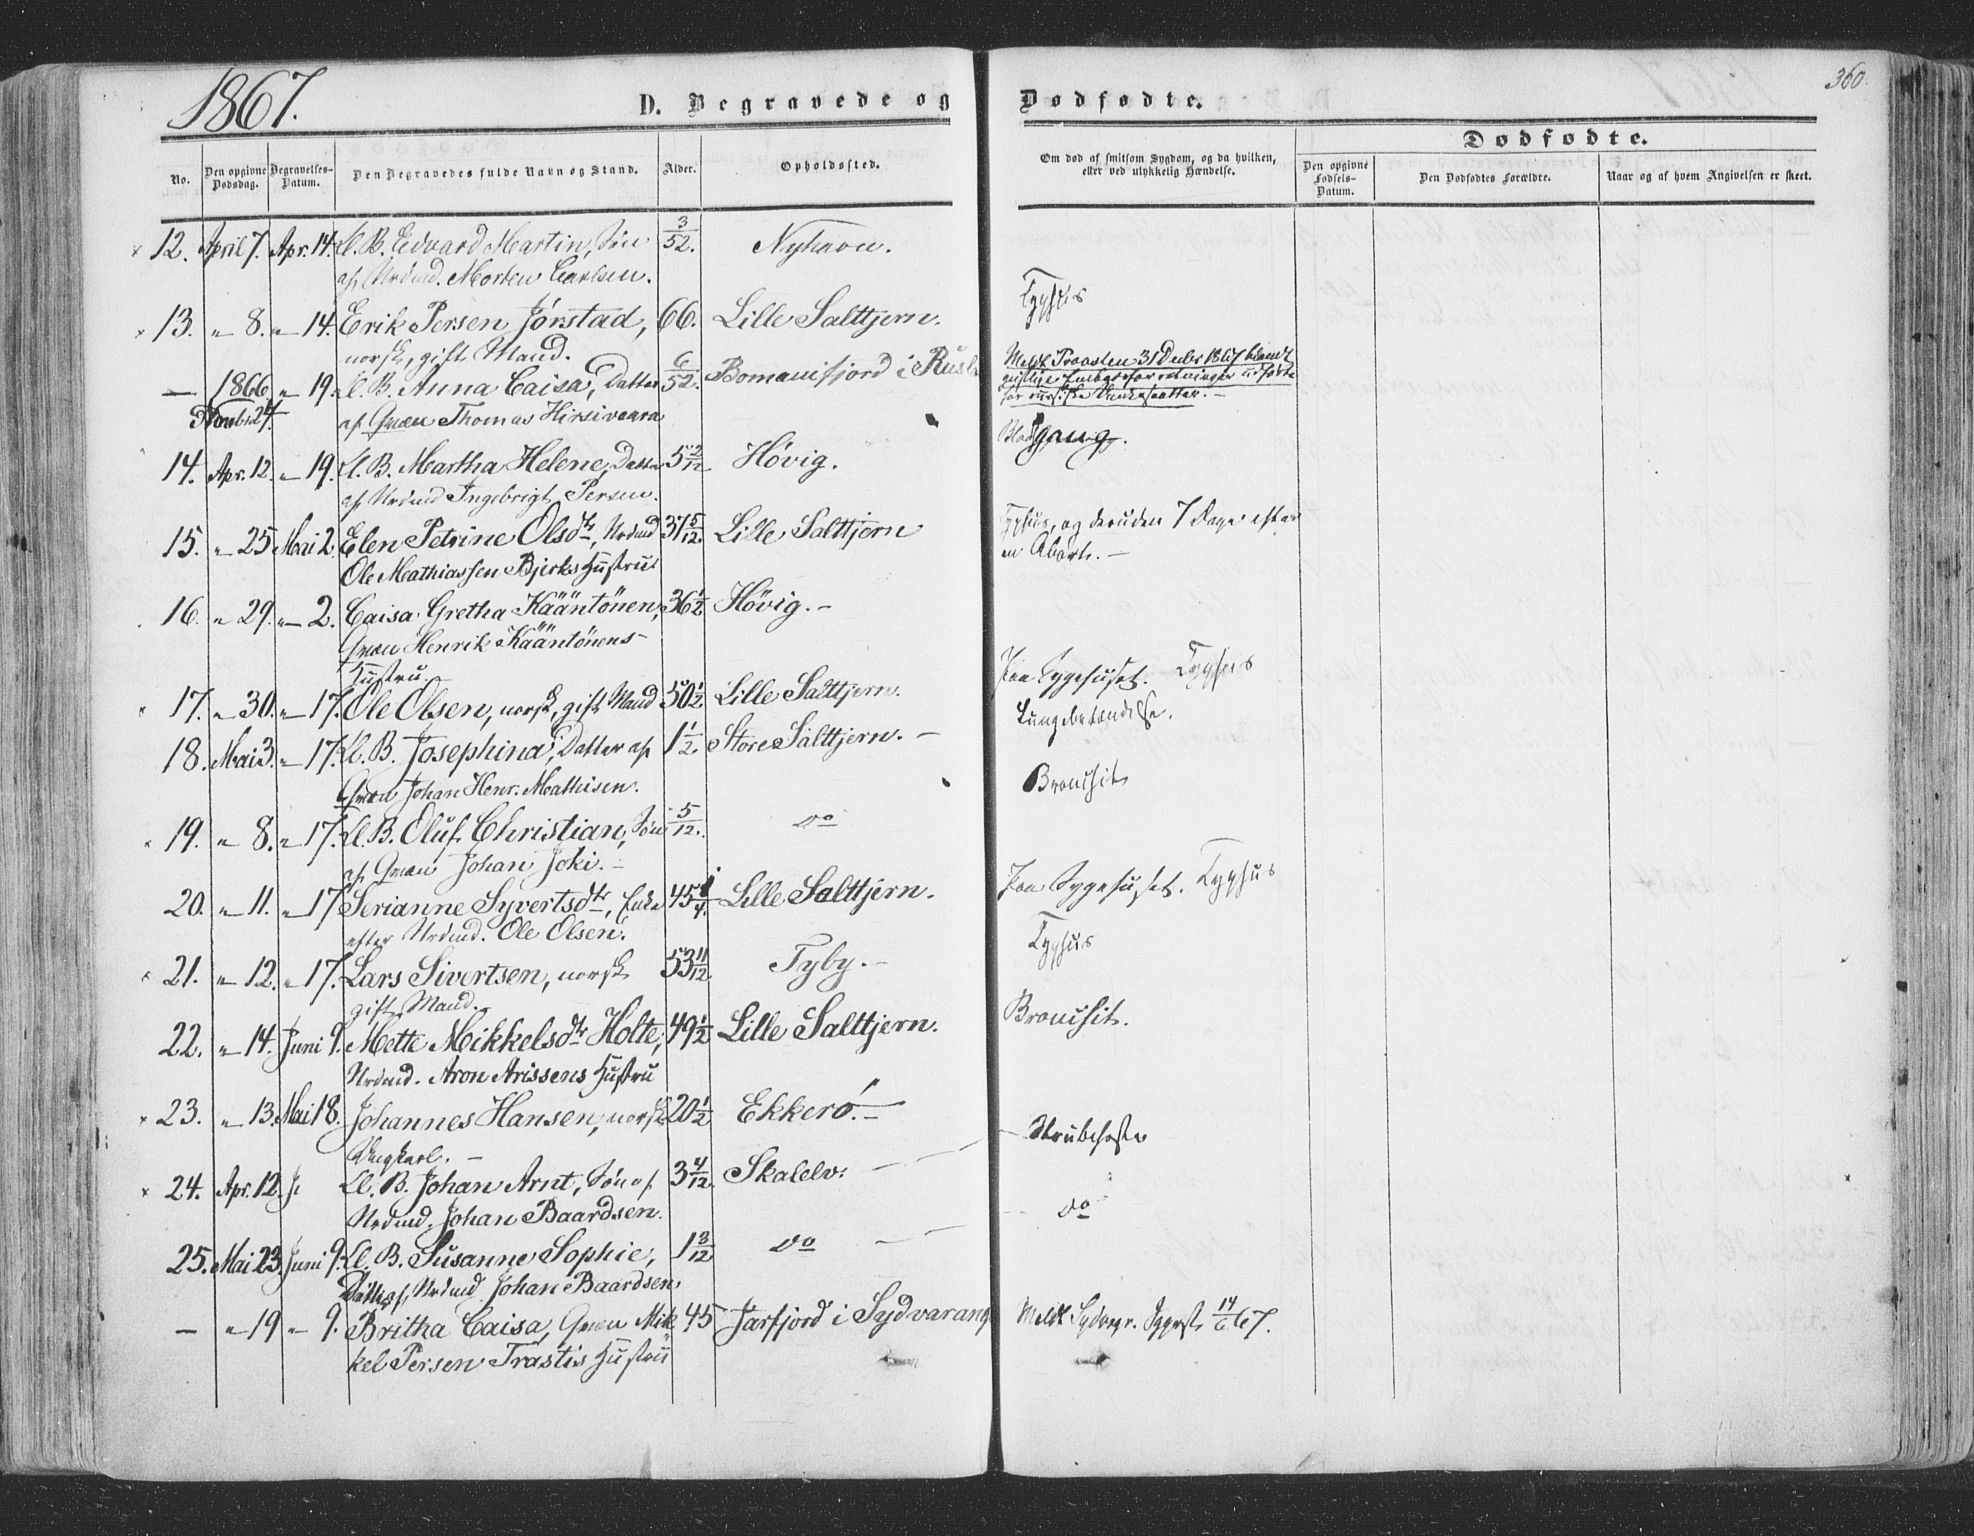 1867.
D. Begravede og Dødfødte.
360.
Dødfødte.
No. Den opgivne Dødsdag. Begravelses-Datum. Den Begravedes fulde Navn og Stand. Alder. Opholdssted. Om død af smitsom Sygdom, og da hvilken, eller ved ulykkelig Hændelse. Den opgivne Fødsels-Datum. Den Dødfødtes Forældre. Naar og af hvem Angivelsen er skeet.
12. April 7. Apr. 14. Ll. B. Edvard Martin, Søn 3/52. Nyhavn.
af Nrdmd. Morten Carlsen.
13. " 8. " 14. Erik Persen Jørstad, 66. Lille Salttjern. Typhus
norsk, gift Mand.
— 1866 " 19. Ll. B. Anna Caisa, Datter 6/52. Bomanifjord i Rusl. Meldt Provsten 31 Decbr 1867 blandt
geistlige Embedsforretninger udførte
for russiske Undersaatter. —
24. af Qvæn Thomas Hirsivaara
14. Apr. 12. " 19. Ll. B. Martha Helene, Datter 5 2/12 Høvig. Blodgang.
af Nrdmd Ingebrigt Persen.
15. " 25 Mai 2. Elen Petrine Olsdtr, Nrdmd 37 5/12. Lille Salttjern Typhus, og desuden 7 Dage efter
en Abort. —
Ole Mathiassen Bjerks Hustru
16. " 29. " 2. Caisa Gretha Kääntönen, 36 1/2 Høvig. —
Qvæn Henrik Kääntönens
Hustru.
17. " 30. " 17. Ole Olsen, norsk, gift Mand 50 1/2 Lille Salttjern. Paa Sygehuset. Typhus
Lungebetændelse.
18. Mai 3. " 17. Ll. B. Josephina, Datter af 1 1/2. Store Salttjern. —
Qvæn Johan Henr. Mathisen. Bronchit
19. " 8. " 17. Ll. B. Oluf Christian, Søn 5/12. do
af Qvæn Johan Joki. —
20. " 11. " 17 Serianne Syvertsdtr, Enke 45 1/4. Lille Salttjern. Paa Sygehuset. Typhus
efter Nrdmd. Ole Olsen.
21. " 12. " 17. Lars Sivertsen, norsk 53 11/12 Tyby. — Typhus
gift Mand.
22. " 14. Juni 9. Mette Mikkelsdtr Holte, 49 1/2 Lille Salttjern. Bronchit.
Nrdmd. Aron Arissens Hustru
23. " 13. Mai 18. Johannes Hansen, norsk 20 1/2 Ekkerö. —
Ungkarl. —
24. Apr. 12. Ll. B. Johan Arnt, Søn af 3 4/12. Skalelv. — Strubehoste
Nrdmd. Johan Baardsen.
25. Mai 23. Juni 9. Ll. B. Susanne Sophie, 1 3/12 do — do
Datter af Nrdmd Johan Baardsen.
— " 19 " 9. Britha Caisa, Qvæn Mik- 45 Jarfjord i Sydvarang Meldt Sydvgr. 14/6 67.
kel Persen Trastis Hustru